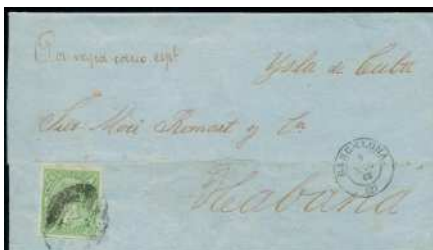 Por vapor correo espl
Ysla de Cuba
Sres Moré y Ca
BARCELONA
Habana